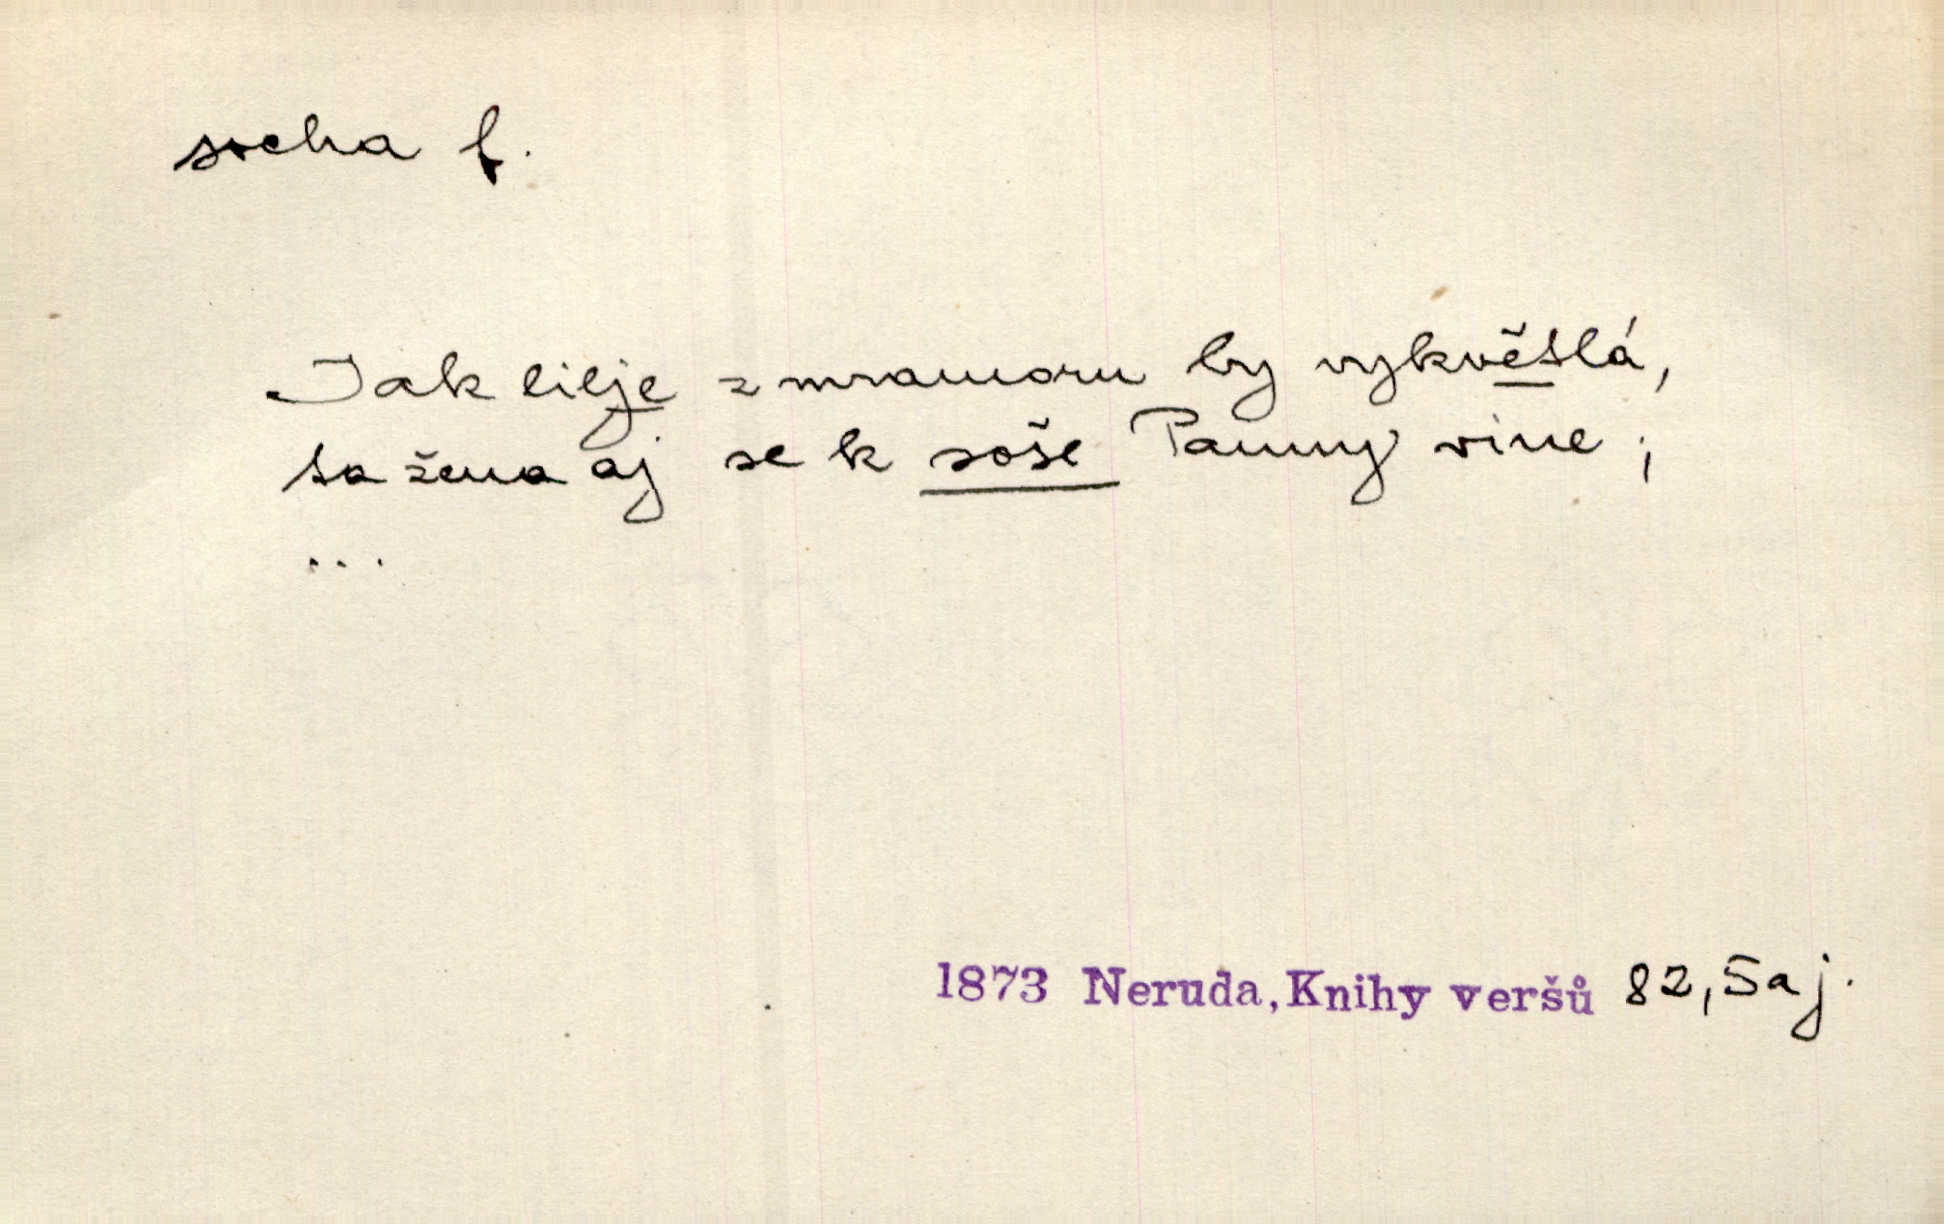 socha f.
Jak lilje z mramoru by vykvětlá,
ta žena aj se k soše Panny vine;
...
1873 Neruda, Knihy veršů 82, 5 a j.